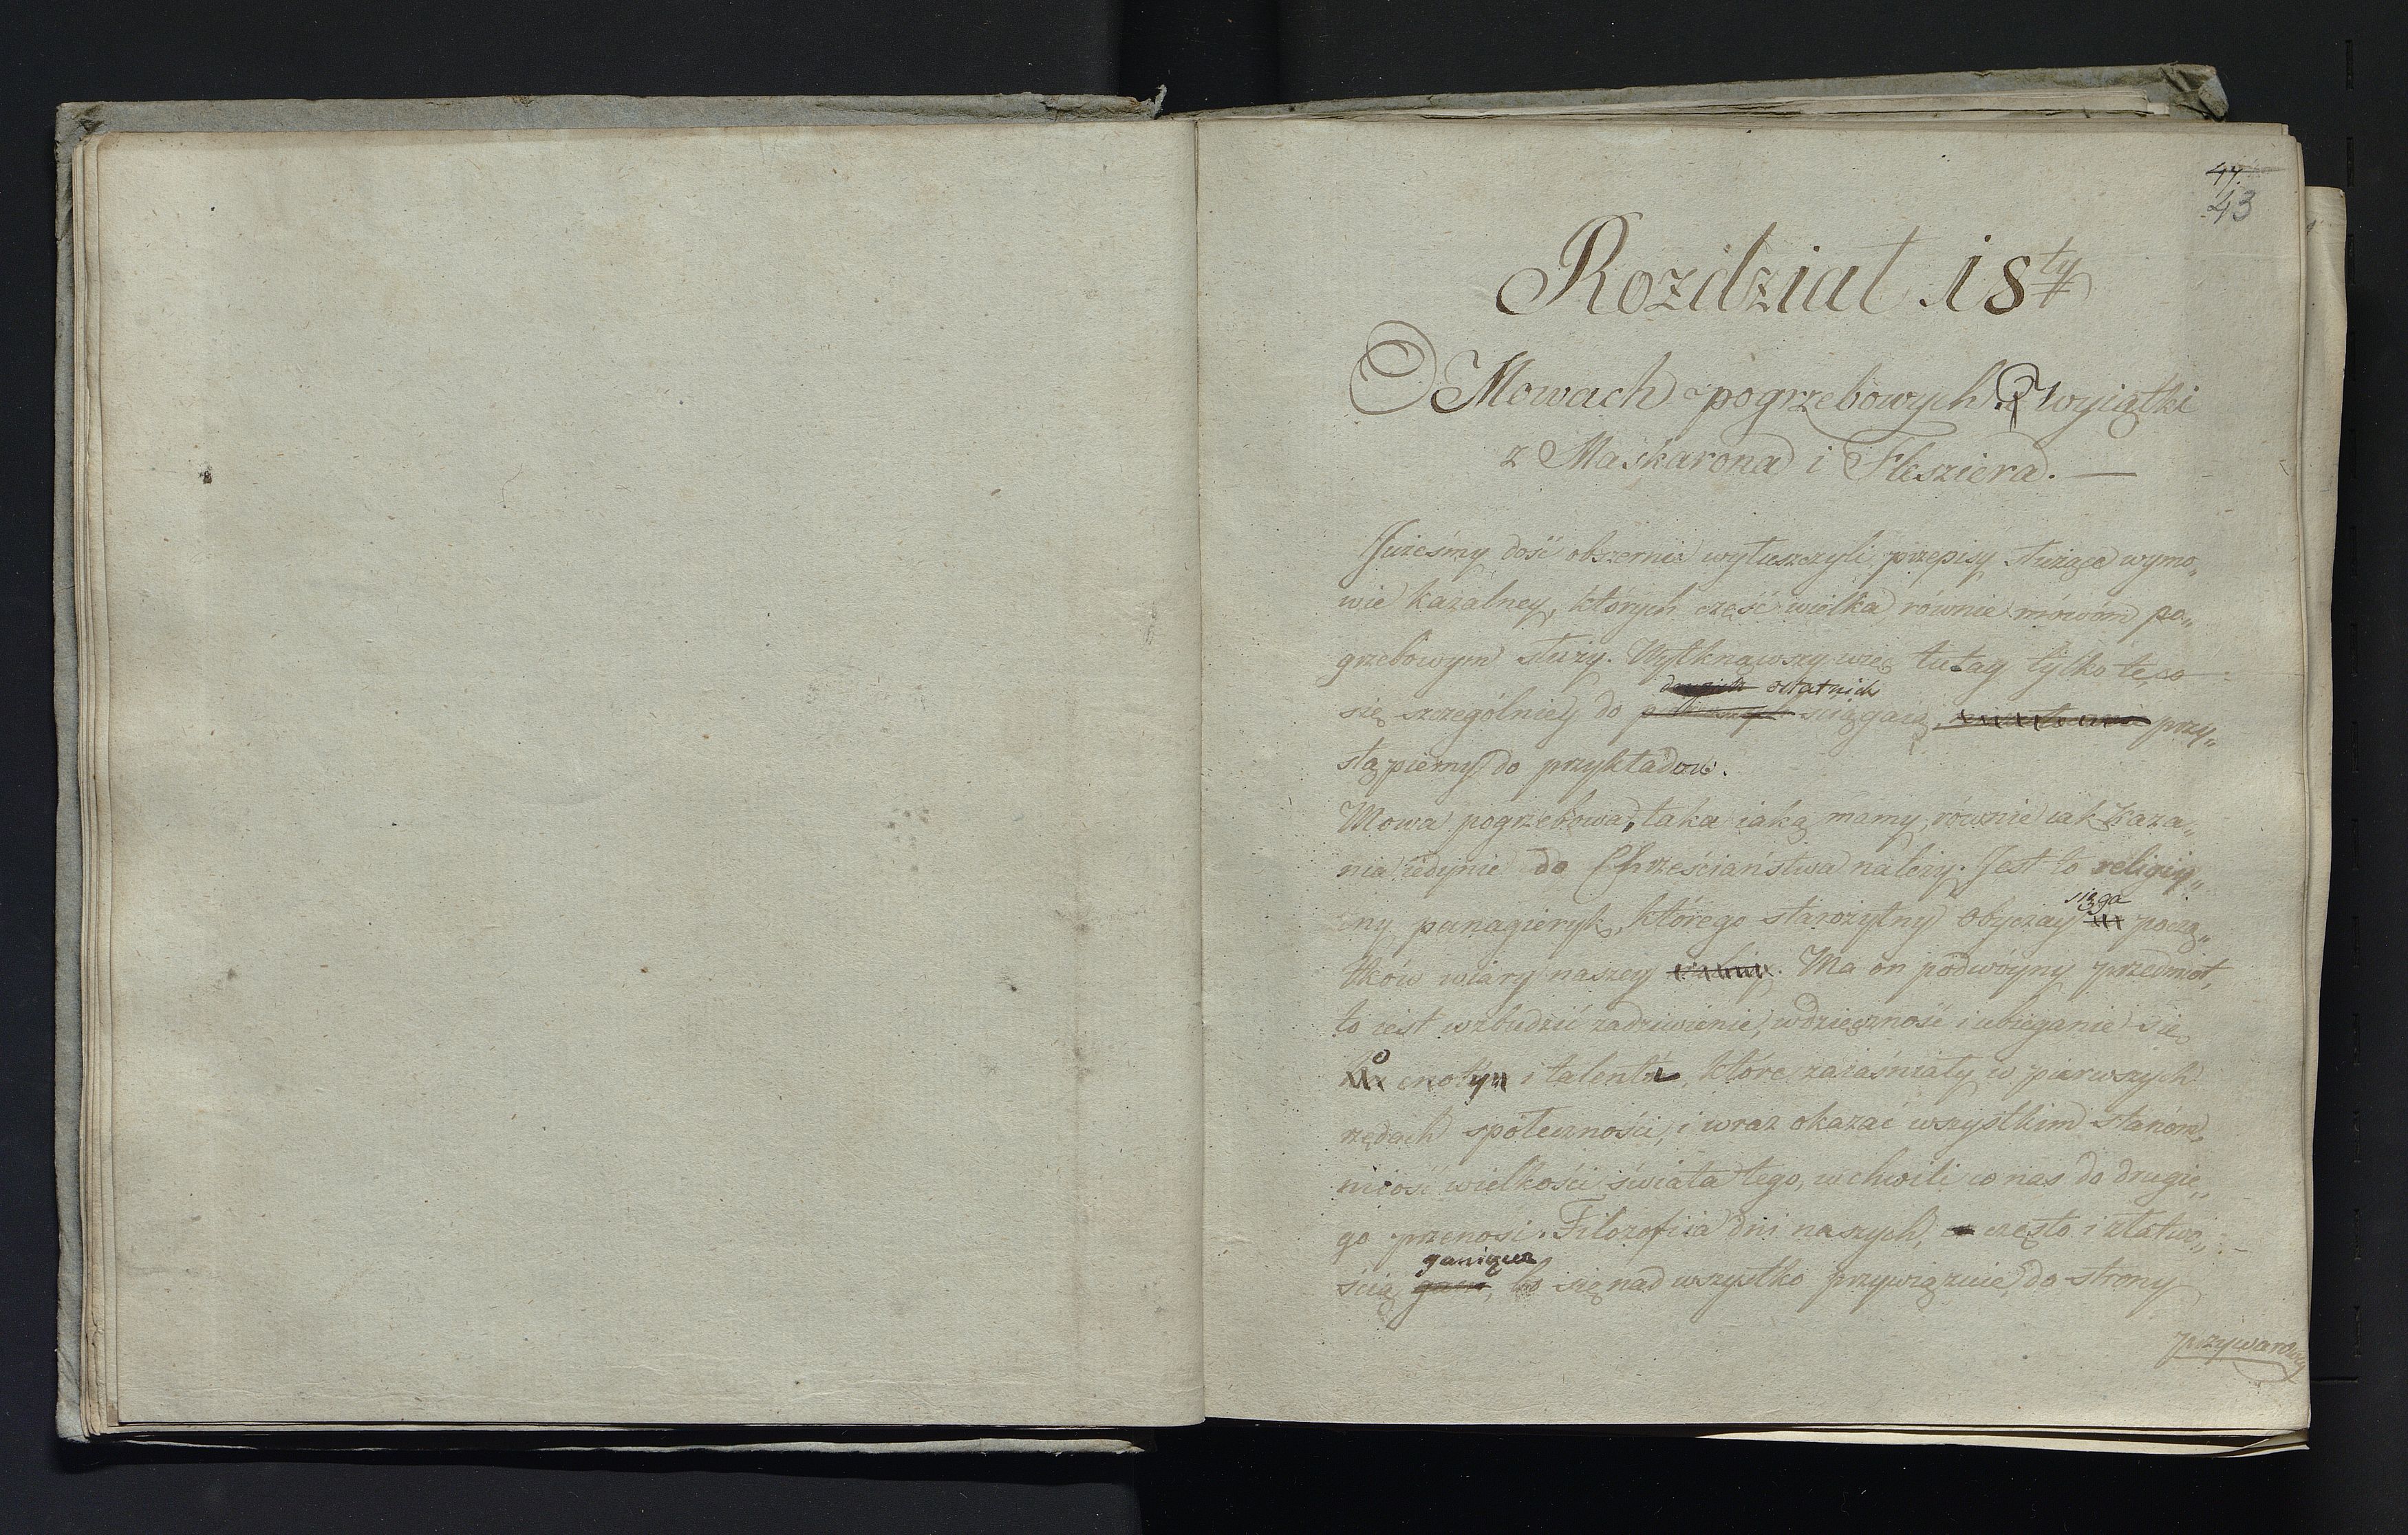 47.
43
Rozdział 1szy
O Mowach pogrzebowych. Wyiątki
z Maskarona i Flesziera. —
Jużeśmy dość obszernie wyłuszczyli, przepisy służące wymo„
wie kazalney, których część wielka, równie mówóm po„
grzebowym służy. Wytknąwszy więc tutay tylko te, co
ostatnich
się szczególniey do ściągaią, przy„
stąpiemy do przykładow.
Mowa pogrzebowa, taka iaką mamy, równie iak kaza„
nia iedynie do Chrześciaństwa należy. Jest to religiy„
sięga
ny panagieryk, którego starożytny obyczay począ„
tków wiary naszey. Ma on podwóyny przedmiot,
to iest wzbudzić zadziwienie, wdzięczność i ubieganie się
o cnoty i talenta, które zaiaśniały w pierwszych
rzędach społeczności, i wraz okazać wszystkim stanóm,
nicość wielkości świata tego, w chwili co nas do drugie„
go przenosi. Filozofiia dni naszych, często i złatwo„
ganiąca
ścią, bo się nad wszystko przywiązuie do strony
przywarowey